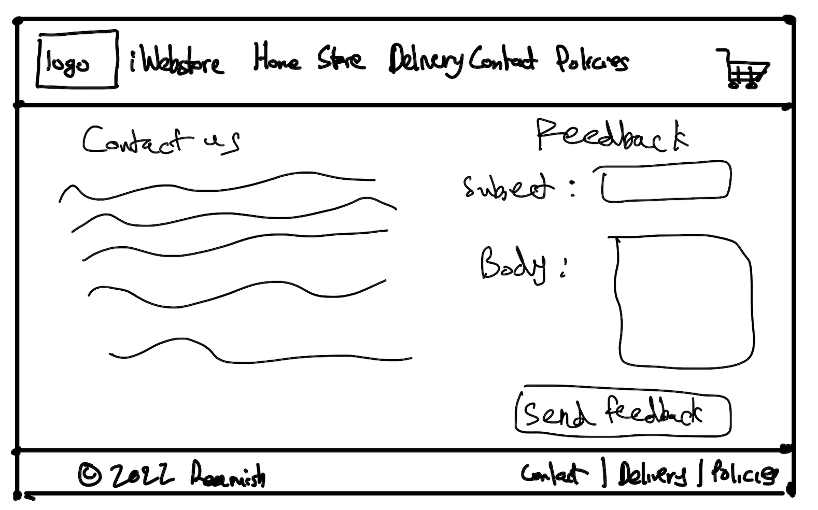 logo iWebstore Home Store Delivery Contact Policies
Contact us
Feedback
Subect :
Body :
Send feedback
© 2022
Contact | Delivery | Policies